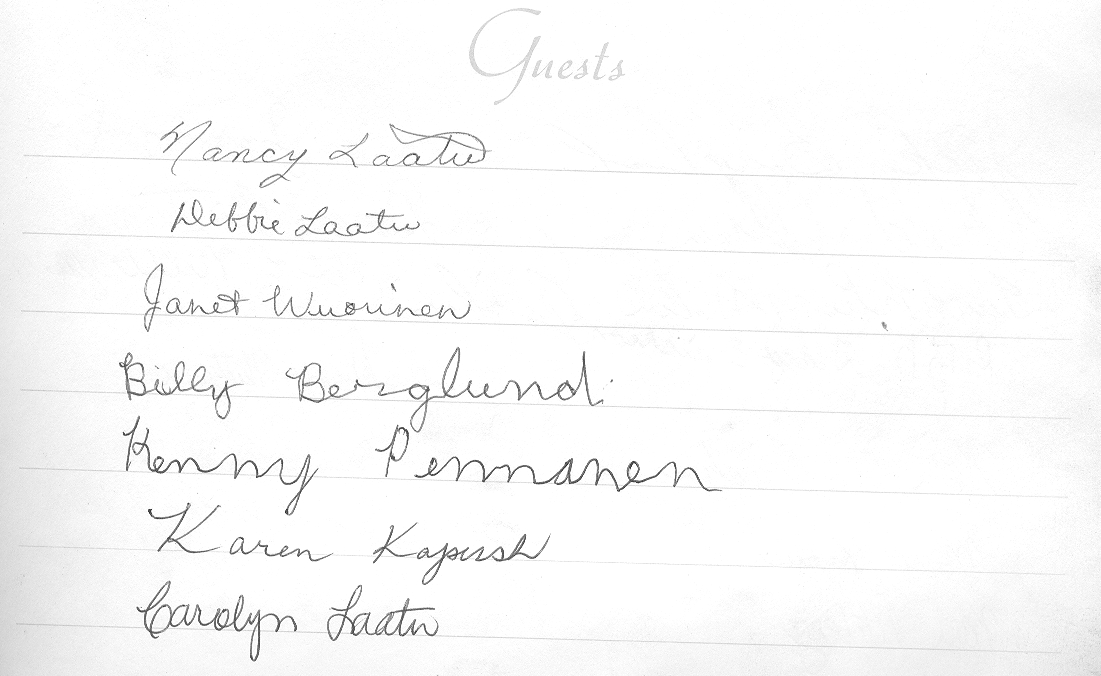 Guests
Nancy Laatu
Debbie Laatu
Janet Wuorinen
Billy Berglund
Kenny Pennanen
Karen Kapush
Carolyn Laatu